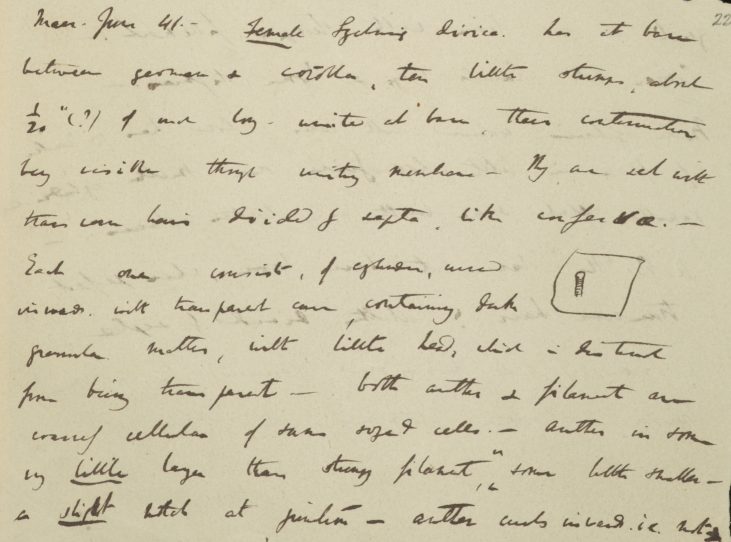 22
Maer. June 41. — Female Lychnis dioica. has at base
between germen & corolla, ten little stumps, about
1/20 "(?) of inch long. united at base, their continuation
being visible through uniting membrane — They are set with
transverse hairs divided by septa, like confervæ. —
Each one consists, of cylinder,
inwards. with transparent cone, containing dark
granular matter, with little head, which is distinct
from being transparent — both anther & filament are
cellular of same sized cells. — anther in some
very little larger than stumpy filament, "in some little smaller —
a slight notch at junction — anther curls inwards. i.e. not